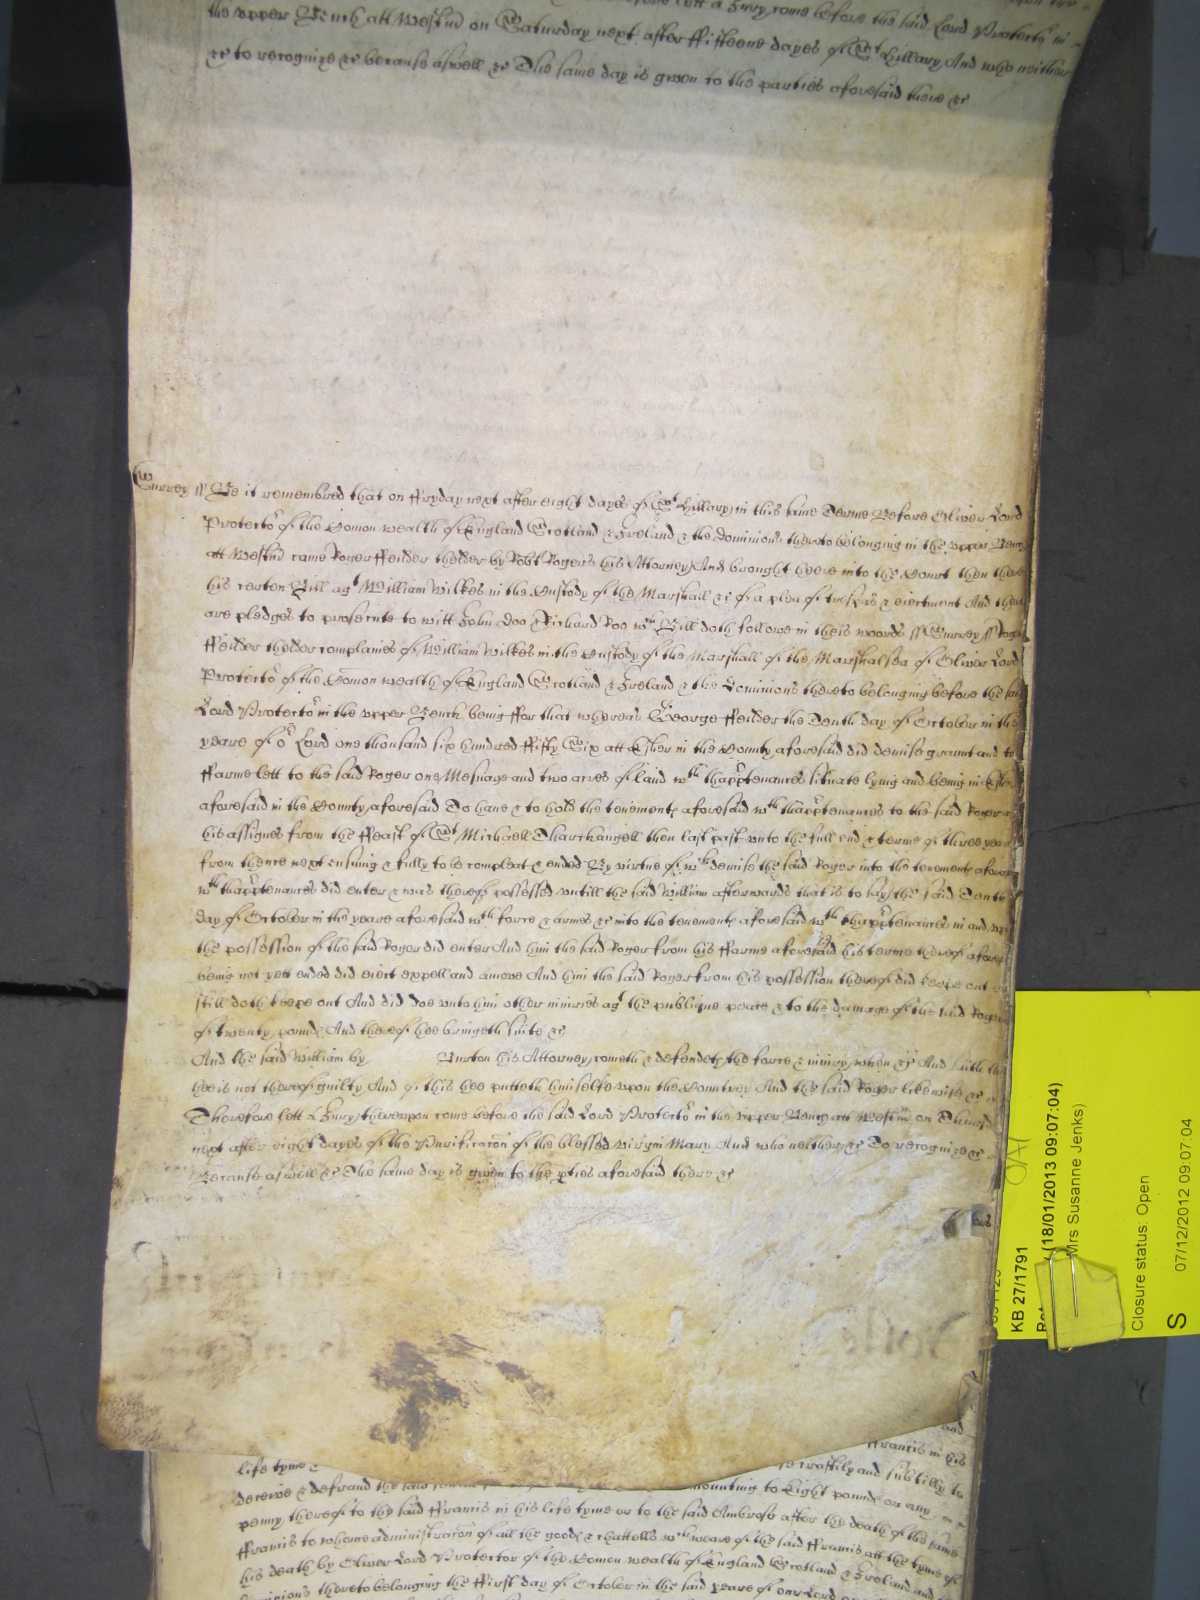 the upper Bench att Westm̃ on Saturday next after ffifteene dayes of St Hillary And who neither
&c to recognize &c because aswell &c The same day is given to the parties aforesaid there &c
Surrey ss Be it remembred that on ffryday next after eight dayes of St Hillary in this same Terme Before Oliver Lord
Protector of the Comon wealth of England Scotland & Ireland & the dominions thereto belonging in the upper Bench
att Westm̃ came Roger ffeilder thelder by Robt Rogers his Attorney And brought heere into the Court then there
his certen Bill agt William Wilkes in the Custody of the Marshall &c of a plea of trespas & eiectment And there
are pledges to prosecute to witt John Doo & Richard Roo wch Bill doth followe in theis woords ss Surrey ss Roger
ffeilder thelder complaines of William Wilkes in the Custody of the Marshall of the Marshalsea of Oliver Lord
Protector of the Comon wealth of England Scotland & Ireland & the Dominions thereto belonging before the said
Lord Protector in the upper Bench being ffor that whereas George ffeilder the Tenth day of October in the
yeare of or Lord one thousand six hundred ffifty Six att Esher in the County aforesaid did demise graunt and to
ffarme lett to the said Roger one Mesuage and two acres of land wth thapptenances situate lying and being in Esher
aforesaid in the County aforesaid To have & to hold the tenements aforesaid wth thapptenances to the said Roger &
his assignes from the ffeast of St Michaell Tharchangell then last past unto the full end & terme of three yeares
from thence next ensuing & fully to be compleat & ended By virtue of wch demise the said Roger into the tenements aforesaid
wth thapptenances did enter & was thereof possessed untill the said William afterwards that is to say the said Tenth
day of October in the yeare aforesaid wth force & armes &c into the tenements aforesaid wth thapptenances in and upon
the possession of the said Roger did enter And him the said Roger from his ffarme aforesaid his terme thereof aforesaid
being not yett ended did eiect expell and amove And him the said Roger from his possession thereof did keepe out &
still doth keepe out And did doe unto him other iniuries agt the publique peace & to the damage of the said Roger
of twenty pounds And thereof hee bringeth suite &c
And the said William by Burton his Attorney cometh & defendeth the force & iniury when &c And saith that
hee is not thereof guilty And of this hee putteth himselfe upon the Countrey And the said Roger likewise &c
Therefore lett a Jury thereupon come before the said Lord Protector in the upper Bench att Westm̃ on Thursday
next after eight dayes of the Purificacon of the blessed virgin Mary And who neither &c To recognize &c
Because aswell &c The same day is given to the pties aforesaid there &c
ffrancis in his
life tyme craftily and subtilly to
deceive & defraud the said amounting to Eight pounds or any
penny thereof to the said ffrancis in his life tyme or to the said Ambrose after the death of the same
ffrancis to whome administracon of all the goods & chattells wch weare of the said ffrancis att the tyme of
his death by Oliver Lord Protector of the Comon wealth of England Scotland & Ireland and
dominions thereto belonging the ffirst day of October in the said yeare of our Lord
KB 27/1791
(18/01/2013 09:07:04)
Mrs Susanne Jenks)
Closure status: Open
07/12/2012 09:07:04
S